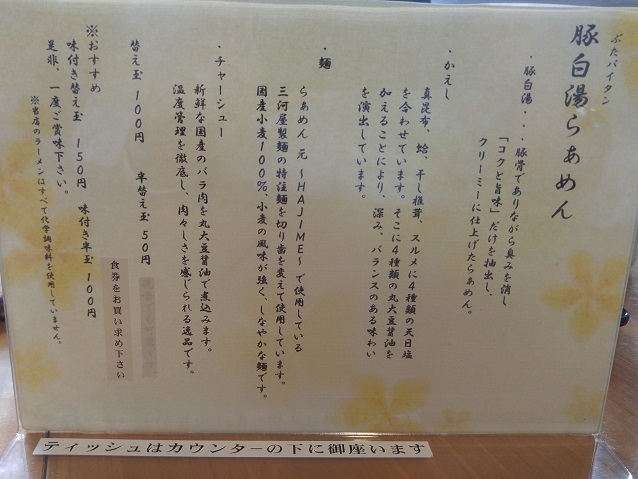 ぶたパイタン
豚白湯らぁめん
・豚白湯・・・豚骨でありながら臭みを消し
「コクと旨味」だけを抽出し、
クリーミーに仕上げたらぁめん。
・かえし
真昆布、蛤、干し椎茸、スルメに４種類の天日塩
を合わせています。そこに４種類の丸大豆醤油を
加えることにより、深み、バランスのある味わい
を演出しています。
・麺
らぁめん 元 〜HAJIME〜 で使用している
三河屋製麺の特注麺を切り歯を変えて使用しています。
国産小麦１００％、小麦の風味が強く、しなやかな麺です。
・チャーシュー
新鮮な国産のバラ肉を丸大豆醤油で煮込みます。
温度管理を徹底し、肉々しさを感じられる逸品です。
替え玉 １００円 半替え玉 ５０円
※おすすめ
味付き替え玉 １５０円 味付き半玉 １００円
是非、一度ご賞味下さい。
※当店のラーメンはすべて化学調味料を使用していません。
食券をお買い求め下さい
ティッシュはカウンターの下に御座います